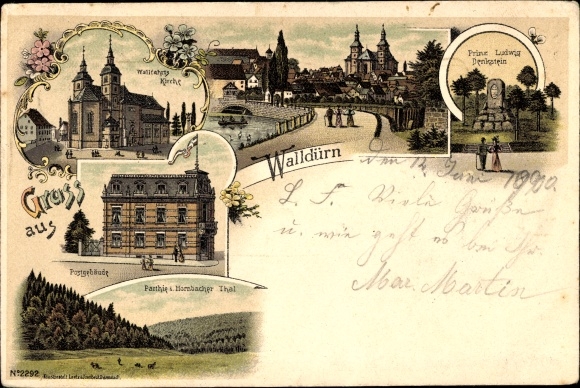 Wallfahrts
Kirche
Prinz Ludwig
Denkstein
Walldürn
den 12. Juni 1900.
Gruss
aus
L. F. Viele Grüße
u. wie geht es bei Ihr.
Max. Martin
Postgebäude
Parthie i. Hornbacher Thal
No 2292